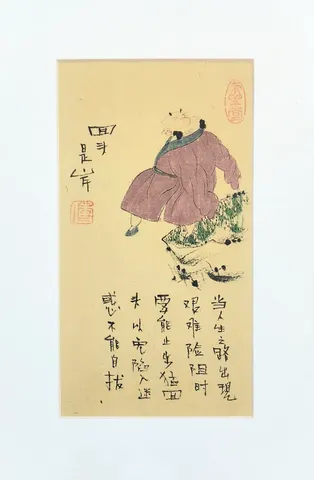 回头是岸
当人生之路出現
艰难险阻时
要能止步猛回
头以免陷入迷
惑不能自拔